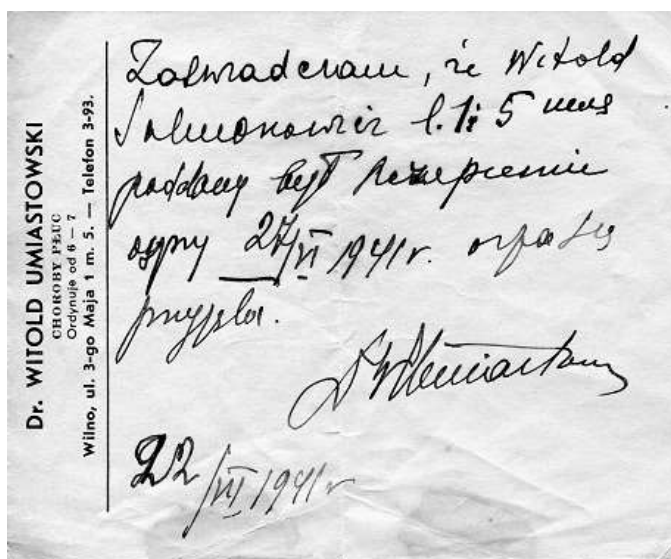 Dr. WITOLD UMIASTOWSKI
CHOROBY PŁUC
Ordynuje od 6 — 7
Wilno, ul. 3-go Maja 1 m. 5. — Telefon 3-93.
Zaświadczam, że Witold
Salmonowicz l. 1 i 5 mies
poddany był szczepieniu
ospy 27/VI 1941 r. ospa się
przyjęła.
Dr W Umiastowski
22/VII 1941 r